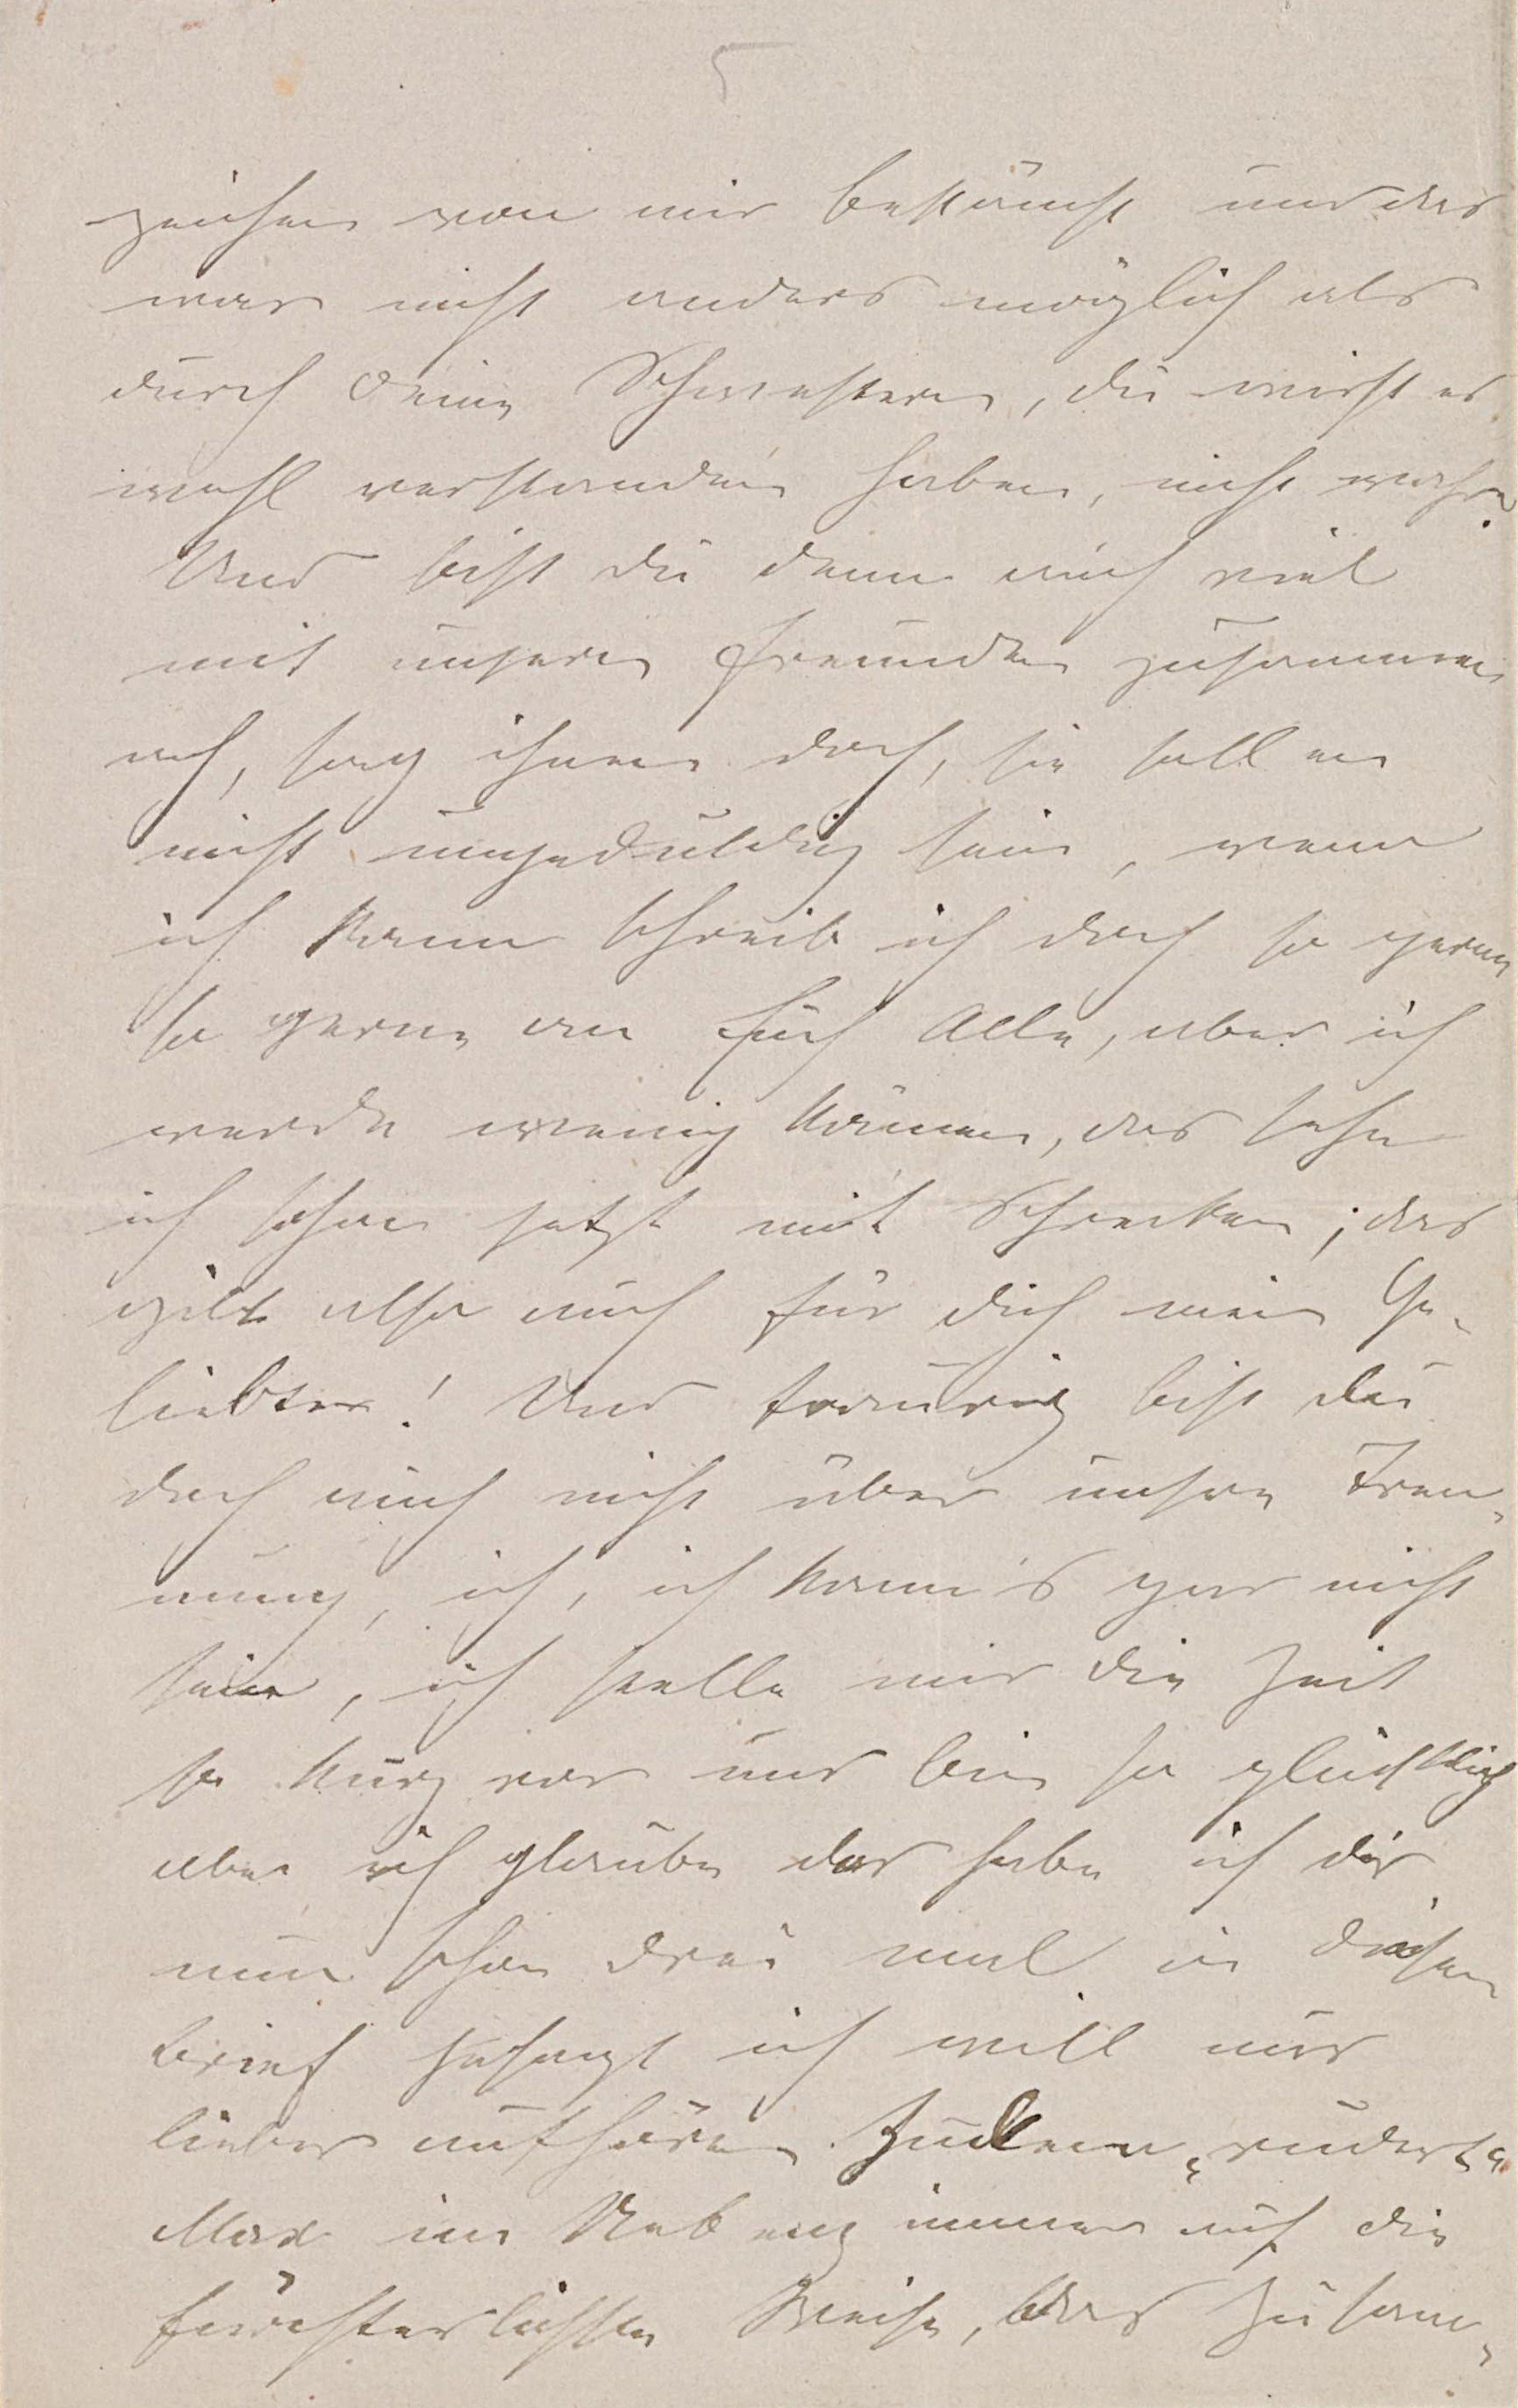 5
zeichen von mir bekämst und das
war nicht anders möglich als
durch Deine Schwestern, du wirst es
wohl verstanden haben, nicht wahr?
Und bist du denn auch viel
mit unseren Freunden zusammen
ach, sag ihnen doch, sie sollen
nicht ungeduldig sein, wenn
ich kann schreib ich doch so gerne
so gerne an Euch Alle, aber ich
werde wenig können, das sehe
ich schon jetzt mit Schrecken; das
gilt also auch für dich mein Ge-
liebter! Und traurig bist du
doch auch nicht über unsere Tren-
nung, ich, ich kann's gar nicht
sein, ich stelle mir die Zeit
so kurz vor und bin so glücklich
aber ich glaube das habe ich dir
nun schon drei mal in diesem
Brief gesagt ich will nur
lieber aufhören. Zudem „rudert“
Max im Nebenz immer auf die
fürchterlichste Weise, das zusam-